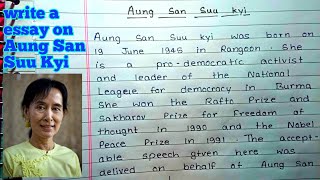 write a
essay on
Aung San
Suu Kyi
Aung San Suu Kyi
Aung San Suu kyi was born on
19 June 1945 in Rangoon. She
is a pro-democratic activist
and leader of the National
League for democracy in Burma
She won the Rafto Prize and
Sakharov Prize for Freedom of
thought in 1990 and the Nobel
Peace Prize in 1991. The accept-
able speech given here was
delived on behalf of Aung San